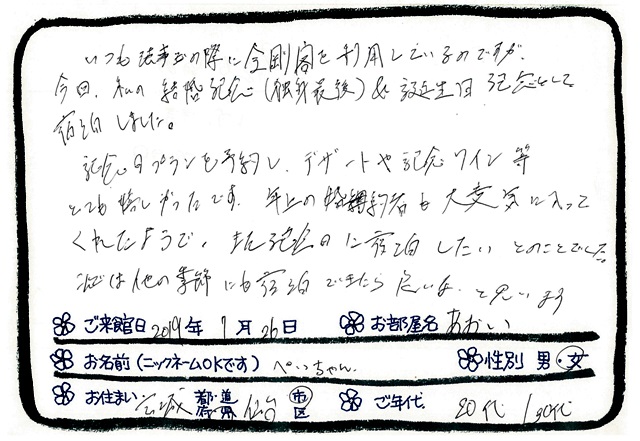 いつも法事などの際に金剛閣を利用しているのですが、
今回、私の結婚記念(独身最後)&誕生日記念として
宿泊しました。
記念日プランを予約し、デザートや記念ワイン等
とても嬉しかったです。年上の婚約者も大変気に入って
くれたようで、また記念日に宿泊したいとのことでした。
次は他の季節にも宿泊できたら良いな、と思います
ご来館日 2019年 1月 26日 お部屋名 あおい
お名前(ニックネームOKです) ぺいっちゃん 性別 男・女
お住まい 宮城 都道府県 仙台 市区 ご年代 20代/30代